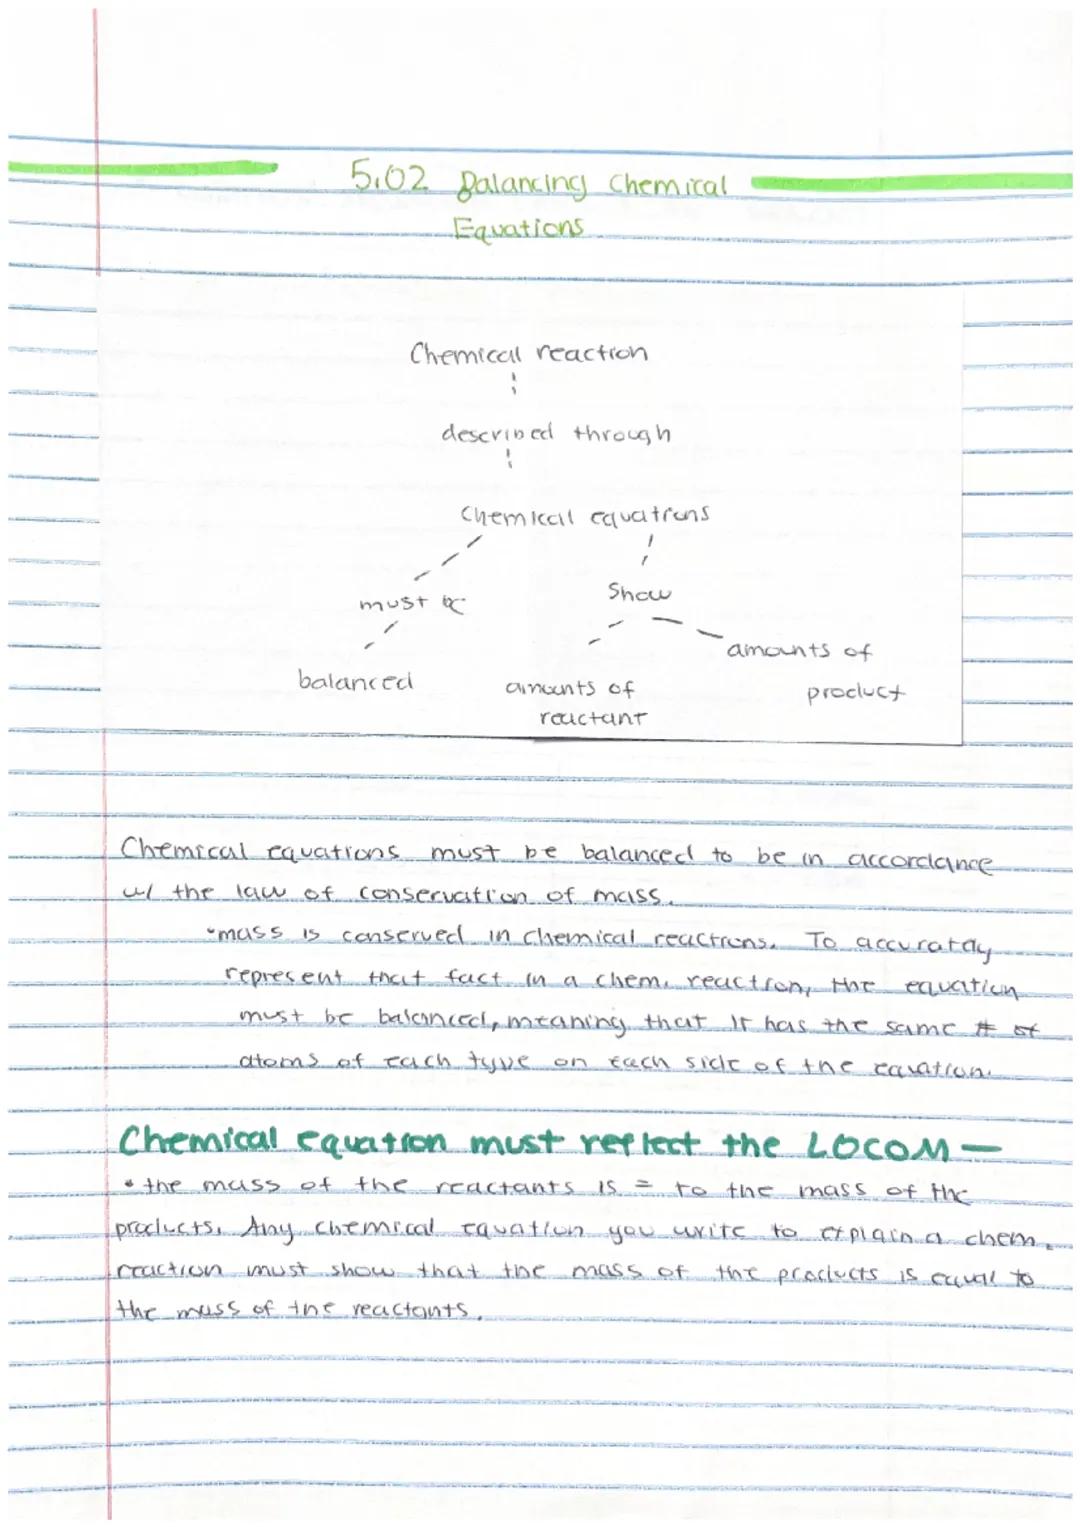 5.02 Balancing Chemical
Equations
Chemical reaction
described through
Chemical equations
must be
Show
balanced
amounts of
reactant
amounts of
product
Chemical equations must be balanced to be in accordance
w/ the law of conservation of mass.
•mass is conserved in chemical reactions. To accurately
represent that fact in a chem. reaction, the equation
must be balanced, meaning that it has the same # of
atoms of each type on each side of the equation.
Chemical equation must reflect the LOCOM —
• the mass of the reactants is = to the mass of the
products. Any chemical equation you write to explain a chem.
reaction must show that the mass of the products is equal to
the mass of the reactants.